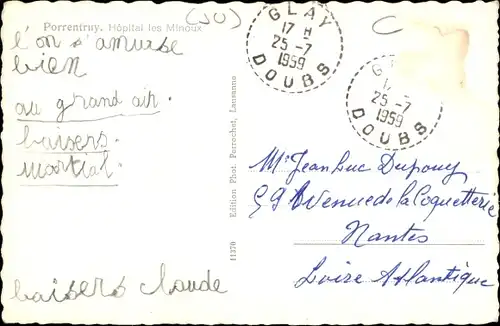 Porrentruy. Hôpital les Minoux
(JU)
C
l'on s'amuse
bien
au grand air.
baisers.
martial.
baisers claude
11370 Edition Phot. Perrochet, Lausanne
GLAY
17 H
25 -7
1959
DOUBS
G
17
25 -7
1959
DOUBS
Mr Jean Luc Dupouy
59 Avenue de la Coquetterie
Nantes
Loire Atlantique